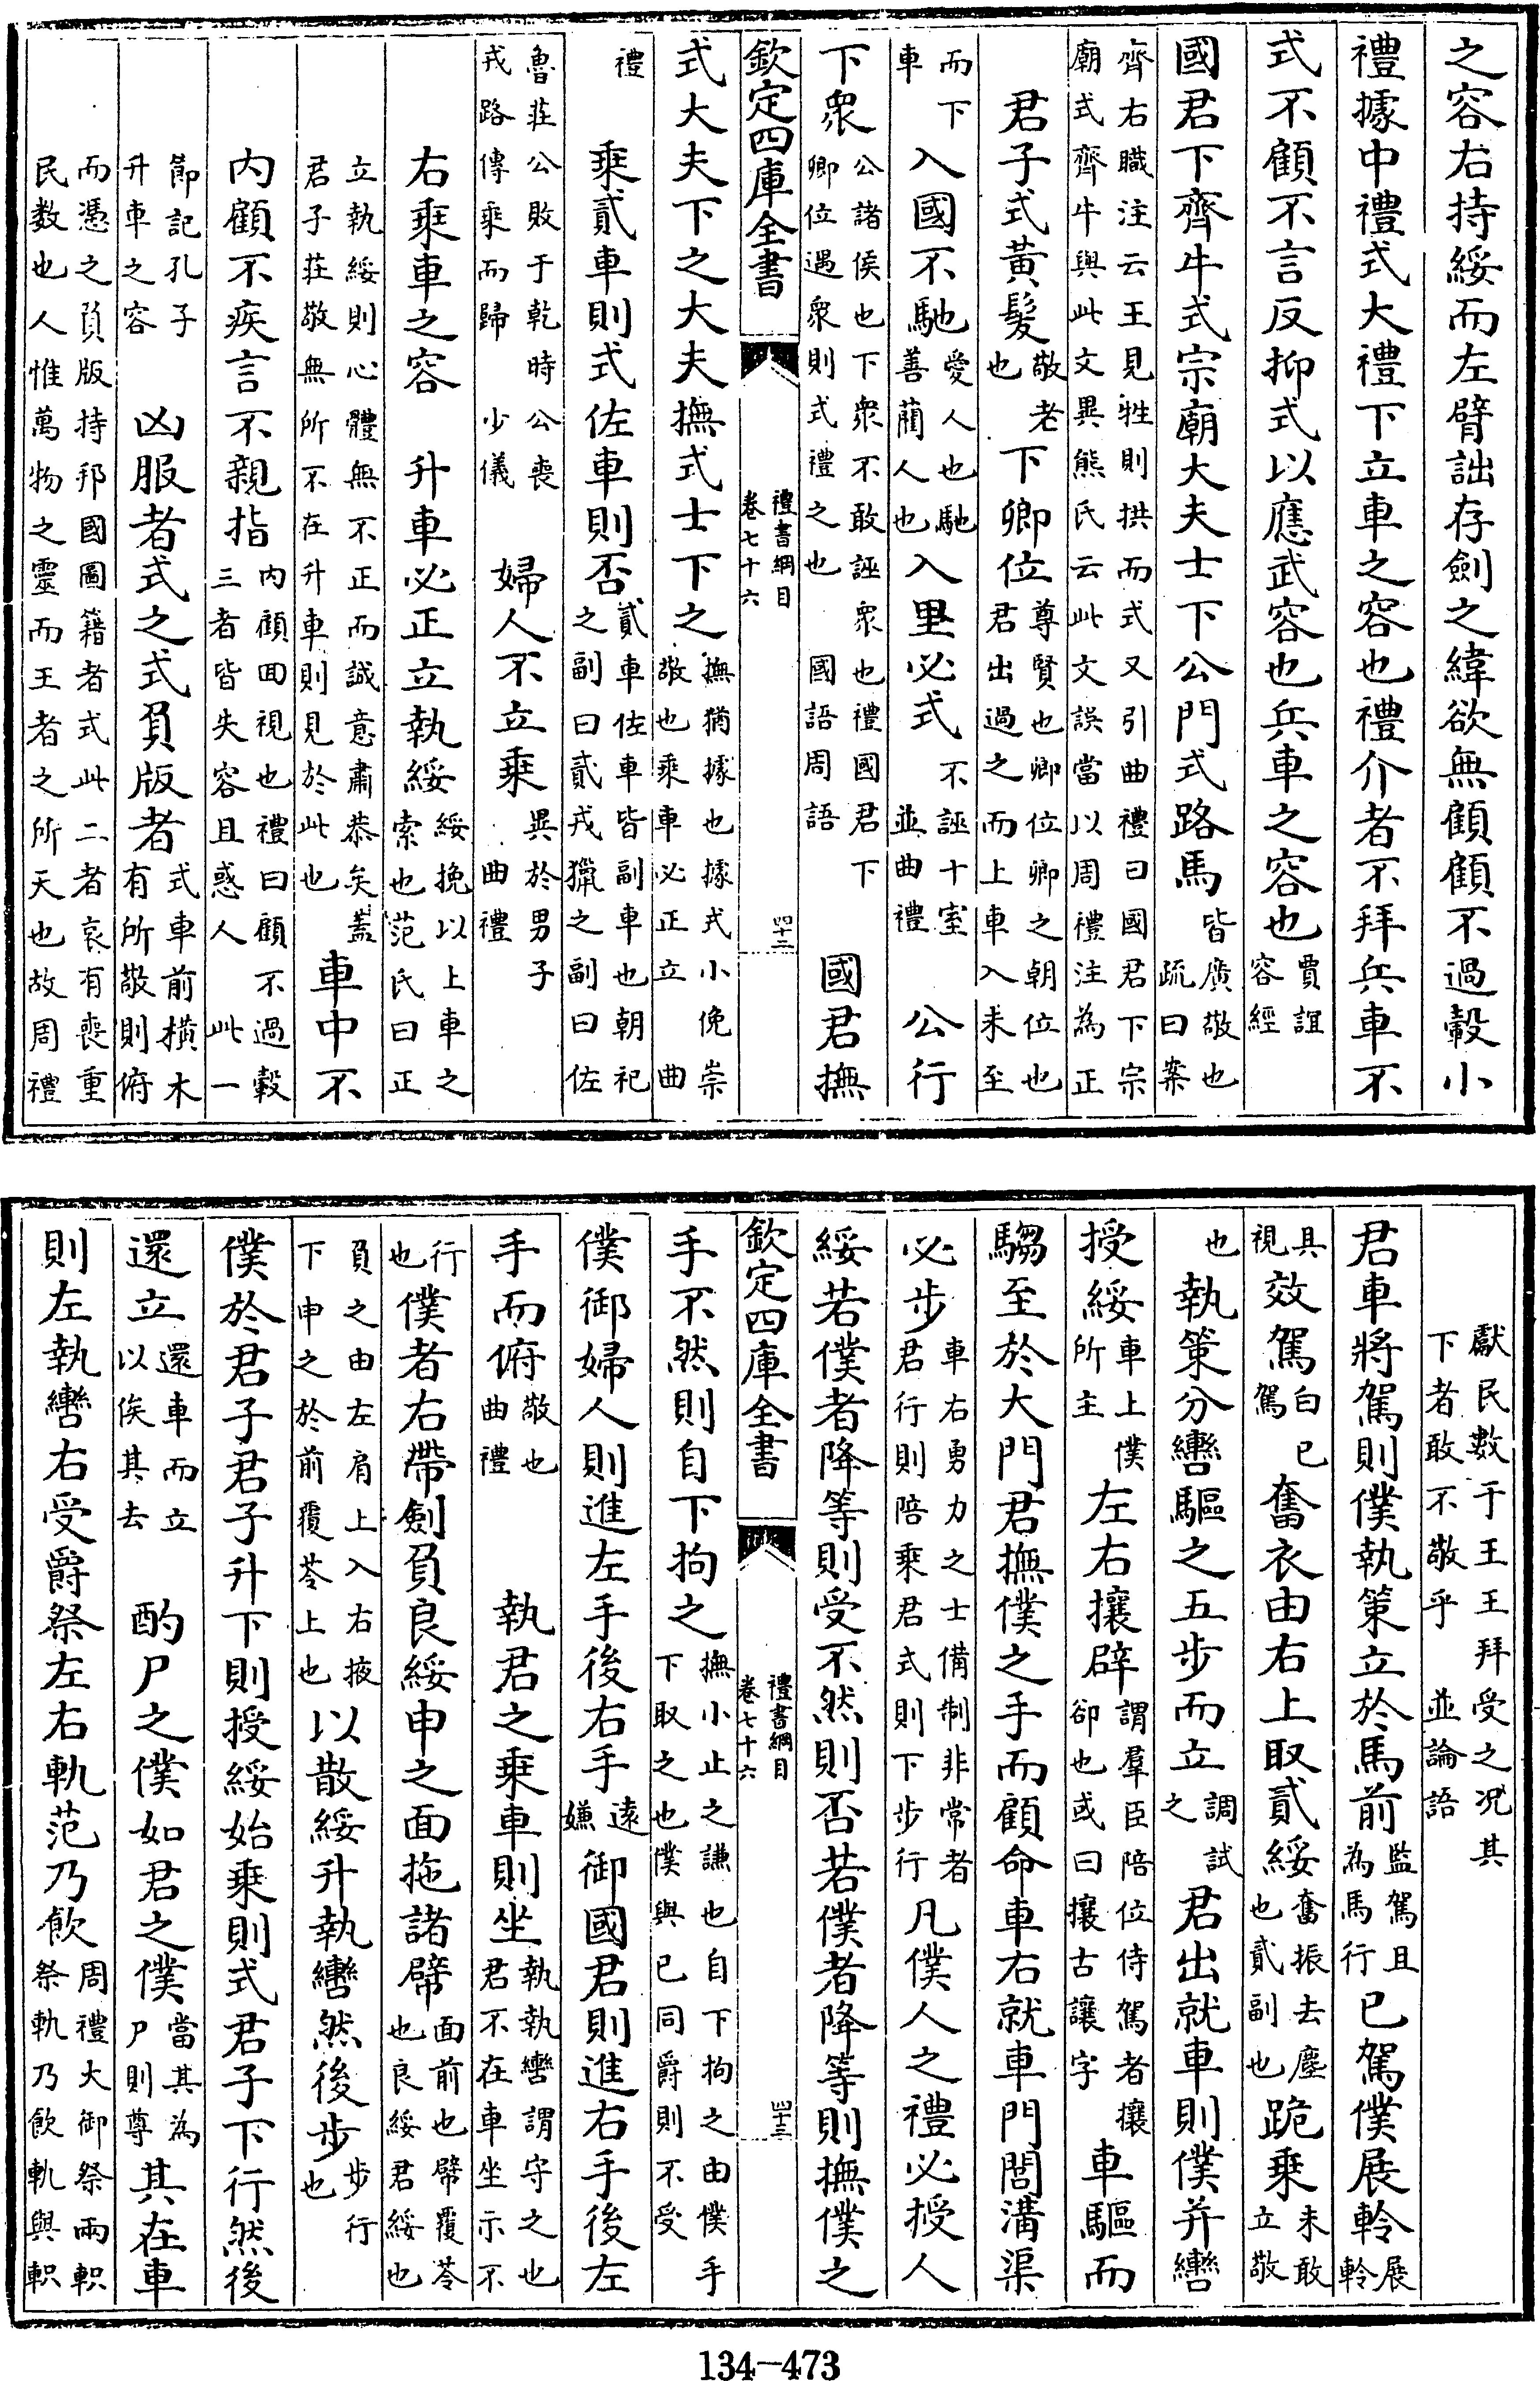 之容右持綏而左臂詘存劍之緯欲無顧顧不過轂小
禮據中禮式大禮下立車之容也禮介者不拜兵車不
式不顧不言反抑式以應武容也兵車之容也賈誼容經
國君下齊牛式宗廟大夫士下公門式路馬皆廣敬也疏曰案
齊右職注云王見牲則拱而式又引曲禮曰國君下宗
廟式齊牛與此文異熊氏云此文誤當以周禮注為正
君子式黃髮敬老也下卿位尊賢也卿位卿之朝位也君出過之而上車入未至
而下車入國不馳愛人也馳善藺人也入里必式不誣十室 並曲禮 公行
下衆公諸侯也下衆不敢誣衆也禮國君下卿位遇衆則式禮之也 國語周語 國君撫
欽定四庫全書 禮書綱目 卷七十六 四十二
式大夫下之大夫撫式士下之撫猶據也據式小俛崇敬也乘車必正立 曲
禮 乘貳車則式佐車則否貳車佐車皆副車也朝祀之副曰貳戎獵之副曰佐
魯莊公敗于乾時公喪戎路傳乘而歸 少儀 婦人不立乘異於男子 曲禮
右乘車之容 升車必正立執綏綏挽以上車之索也范氏曰正
立執綏則心體無不正而誠意肅恭矣蓋君子莊敬無所不在升車則見於此也 車中不
內顧不疾言不親指內顧回視也禮曰顧不過轂三者皆失容且惑人 此一
節記孔子升車之容 凶服者式之式負版者式車前橫木有所敬則俯
而憑之負版持邦國圖籍者式此二者哀有喪重
民数也人惟萬物之靈而王者之所天也故周禮
獻民數于王王拜受之况其下者敢不敬乎 並論語
君車將駕則僕執策立於馬前監駕且為馬行已駕僕展軨展軨
具視效駕白已駕奮衣由右上取貳綏奮振去塵也貳副也跪乘未敢立敬
也執策分轡驅之五步而立調試之君出就車則僕并轡
授綏車上僕所主左右攘辟謂羣臣陪位侍駕者攘卻也或曰攘古讓字車驅而
騶至於大門君撫僕之手而顧命車右就車門閭溝渠
必步車右勇力之士備制非常者君行則陪乘君式則下步行凡僕人之禮必授人
綏若僕者降等則受不然則否若僕者降等則撫僕之
欽定四庫全書 禮書綱目 卷七十六 四十三
手不然則自下拘之撫小止之謙也自下拘之由僕手下取之也僕與已同爵則不受
僕御婦人則進左手後右手遠嫌御國君則進右手後左
手而俯敬也 曲禮 執君之乘車則坐執執轡謂守之也君不在車坐示不
行也僕者右帶劍負良綏申之面拖諸幦面前也幦覆苓也良綏君綏也
負之由左肩上入右掖下申之於前覆苓上也以散綏升執轡然後步步行也
僕於君子君子升下則授綏始乘則式君子下行然後
還立還車而立以俟其去 酌尸之僕如君之僕當其為尸則尊其在車
則左執轡右受爵祭左右軌范乃飲周禮大御祭兩軹祭軌乃飲軌與軹
134-473